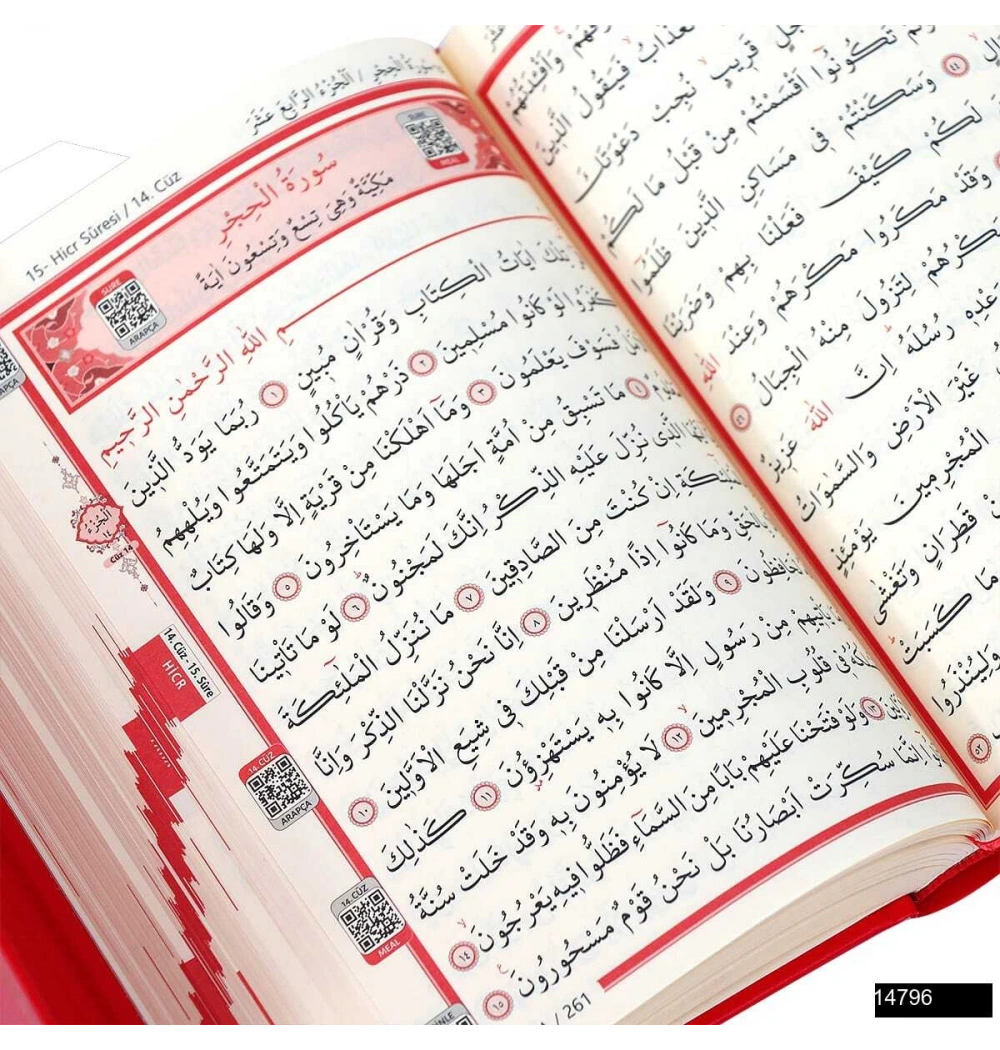 سُورَةُ الْحِجْرِ / اَلْجُزْءُ الرَّابِعَ عَشَرَ
15- Hicr Sûresi / 14. Cüz
SURE
MEAL
سُورَةُ الْحِجْرِ
مَكِّيَّةٌ وَهِىَ تِسْعٌ وَتِسْعُونَ اٰيَةً
SURE
ARAPÇA
اللّٰهِ الرَّحْمٰنِ الرَّحٖيمِ
تِلْكَ اٰيَاتُ الْكِتَابِ وَقُرْاٰنٍ مُبٖينٍ ١ رُبَمَا يَوَدُّ الَّذٖينَ
كَفَرُوا لَوْ كَانُوا مُسْلِمٖينَ ٢ ذَرْهُمْ يَأْكُلُوا وَيَتَمَتَّعُوا وَيُلْهِهِمُ
فَسَوْفَ يَعْلَمُونَ ٣ وَمَٓا اَهْلَكْنَا مِنْ قَرْيَةٍ اِلَّا وَلَهَا كِتَابٌ
٤ مَا تَسْبِقُ مِنْ اُمَّةٍ اَجَلَهَا وَمَا يَسْتَأْخِرُونَ ٥ وَقَالُوا
الَّذٖى نُزِّلَ عَلَيْهِ الذِّكْرُ اِنَّكَ لَمَجْنُونٌ ٦ لَوْ مَا تَأْتٖينَا
اِنْ كُنْتَ مِنَ الصَّادِقٖينَ ٧ مَا نُنَزِّلُ الْمَلٰٓئِكَةَ
وَمَا كَانُٓوا اِذًا مُنْظَرٖينَ ٨ اِنَّا نَحْنُ نَزَّلْنَا الذِّكْرَ وَاِنَّا
لَحَافِظُونَ ٩ وَلَقَدْ اَرْسَلْنَا مِنْ قَبْلِكَ فٖى شِيَعِ الْاَوَّلٖينَ ١٠
يَأْتٖيهِمْ مِنْ رَسُولٍ اِلَّا كَانُوا بِهٖ يَسْتَهْزِؤُنَ ١١ كَذٰلِكَ
فٖى قُلُوبِ الْمُجْرِمٖينَ ١٢ لَا يُؤْمِنُونَ بِهٖ وَقَدْ خَلَتْ سُنَّةُ
١٣ وَلَوْ فَتَحْنَا عَلَيْهِمْ بَابًا مِنَ السَّمَٓاءِ فَظَلُّوا فٖيهِ يَعْرُجُونَ ١٤
اِنَّمَا سُكِّرَتْ اَبْصَارُنَا بَلْ نَحْنُ قَوْمٌ مَسْحُورُونَ ١٥
الْجُزْءُ
١٤
Cüz 14
14. Cüz - 15. Sûre
HİCR
14. CÜZ
ARAPÇA
14. CÜZ
MEAL
/ 261
فَيَقُولُ الَّذٖينَ
قَرٖيبٍ نُجِبْ دَعْوَتَكَ
تَكُونُٓوا اَقْسَمْتُمْ مِنْ قَبْلُ مَا لَكُمْ
٤٤ وَسَكَنْتُمْ فٖى مَسَاكِنِ الَّذٖينَ ظَلَمُٓوا
لَكُمْ كَيْفَ فَعَلْنَا بِهِمْ وَضَرَبْنَا
وَقَدْ مَكَرُوا مَكْرَهُمْ وَعِنْدَ اللّٰهِ
مَكْرُهُمْ لِتَزُولَ مِنْهُ الْجِبَالُ ٤٦
وَعْدِهٖ رُسُلَهُ اِنَّ اللّٰهَ عَزٖيزٌ
غَيْرَ الْاَرْضِ وَالسَّمٰوَاتُ
الْمُجْرِمٖينَ يَوْمَئِذٍ
قَطِرَانٍ وَتَغْشٰى
مَا كَسَبَتْ
وَلِيُنْذَرُوا
٥٢
14796